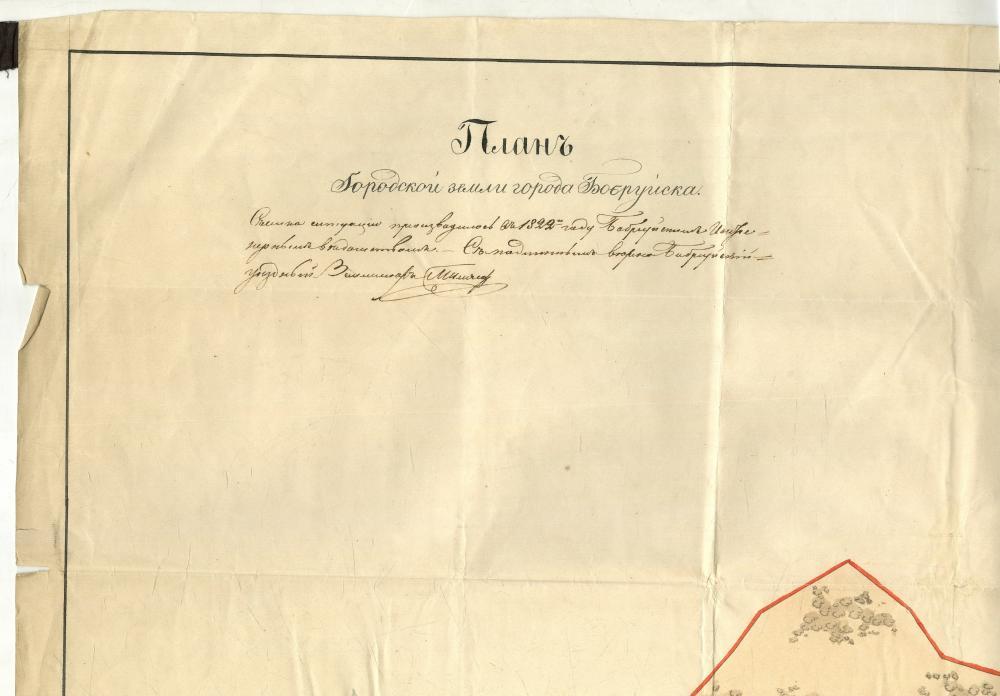 Планъ
Городской земли города Бобруйска.
Съемка ситуаціи производилось въ 1822 м году Бобруйскимъ Инже=
нернымъ вѣдомствомъ. — Съ подлиннымъ вѣрно Бобруйскій=
уѣздный Землемѣръ